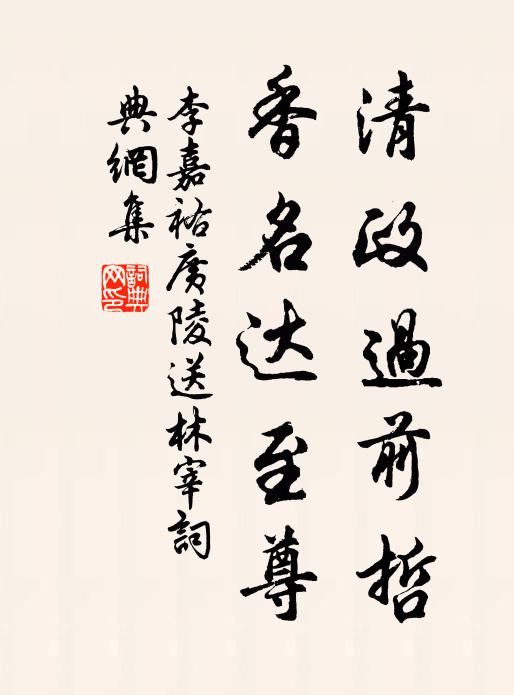 清政過前哲
香名达至尊
李嘉祐廣陵送林宰詞
典網集
詞典
网印